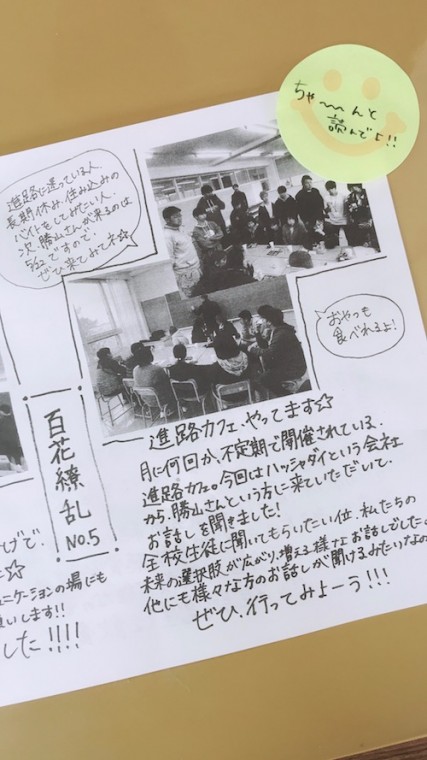 ちゃ〜〜んと
読んでよ!!
進路に迷っている人、
長期休み、住み込みの
バイトをしてみたい人、
次、勝山さんが来るのは
5/22ですので、
ぜひ来てみてネ☆
おやつも
食べれるよ!
百花繚乱
NO.5
進路カフェ、やってます☆
月に何回か、不定期で開催されている、
進路カフェ。今回はハッシャダイという会社
から、勝山さんという方に来ていただいて、
お話しを聞きました!
全校生徒に聞いてもらいたい位、私たちの
未来の選択肢が広がり、増える様なお話しでした。
他にも様々な方のお話しが聞けるみたいなの
ぜひ、行ってみよーう!!!
げで、
ュニケーションの場にも
します!!
した!!!!